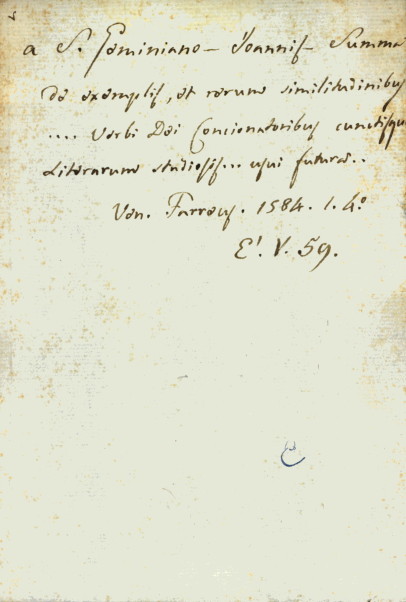 a S. Geminiano - Joannis - Summa
de exemplis, et rerum similitudinibus
.... Verbi Dei Concionatoribus cunctisque
Literarum studiosis... usui futura..
Ven. Farreus. 1584. 1. 4.º
E'. V. 59.